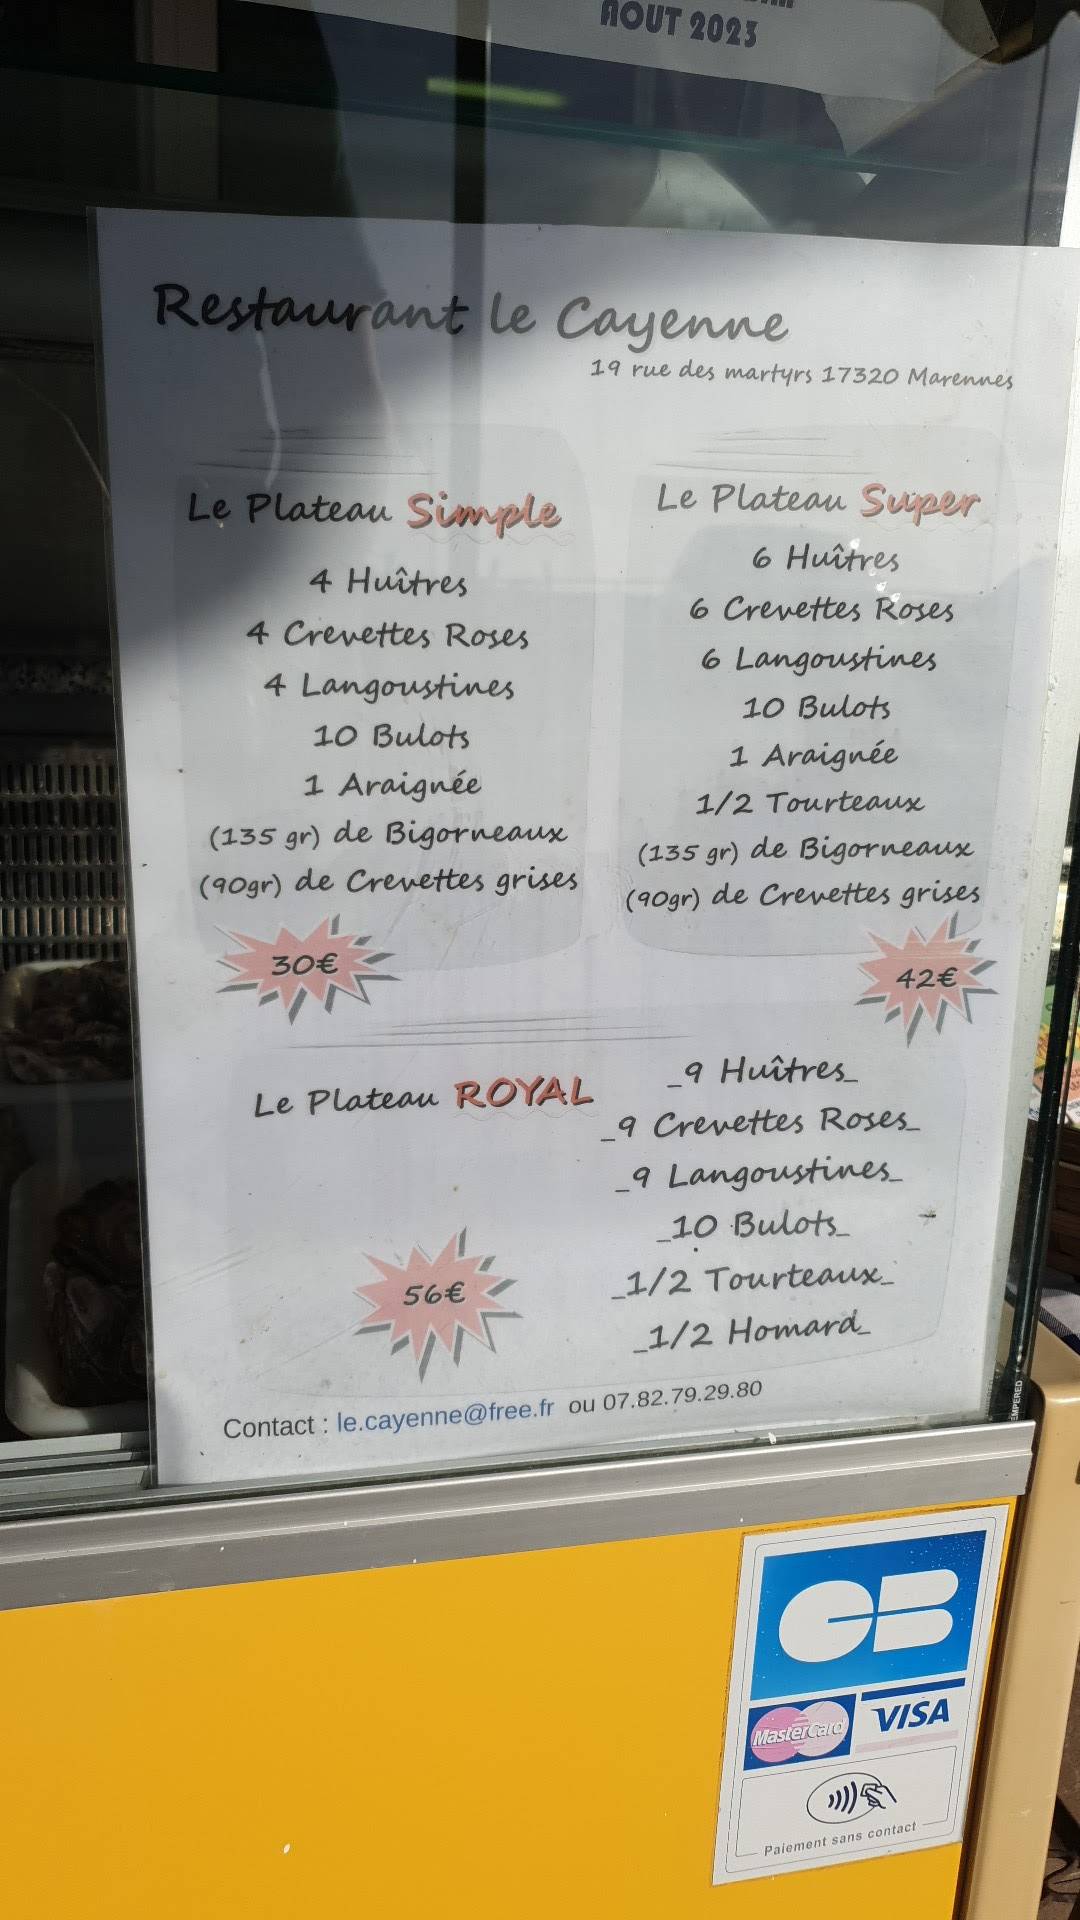 AOUT 2023
Restaurant le Cayenne
19 rue des martyrs 17320 Marennes
Le Plateau Simple
4 Huîtres
4 Crevettes Roses
4 Langoustines
10 Bulots
1 Araignée
(135 gr) de Bigorneaux
(90gr) de Crevettes grises
30€
Le Plateau Super
6 Huîtres
6 Crevettes Roses
6 Langoustines
10 Bulots
1 Araignée
1/2 Tourteaux
(135 gr) de Bigorneaux
(90gr) de Crevettes grises
42€
Le Plateau ROYAL
_9 Huîtres_
_9 Crevettes Roses_
_9 Langoustines_
_10 Bulots_
_1/2 Tourteaux_
_1/2 Homard_
56€
Contact : le.cayenne@free.fr ou 07.82.79.29.80
CB
MasterCard
VISA
Paiement sans contact